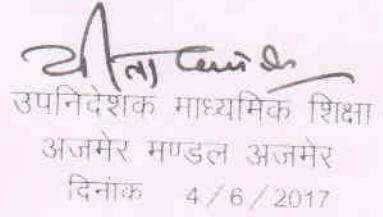 उपनिदेशक माध्यमिक शिक्षा
अजमेर मण्डल अजमेर
दिनांक 4/6/2017